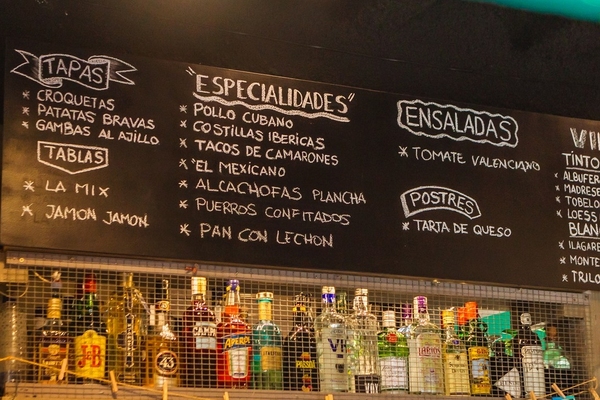 TAPAS
* CROQUETAS
* PATATAS BRAVAS
* GAMBAS AL AJILLO
TABLAS
* LA MIX
* JAMON JAMON
"ESPECIALIDADES"
* POLLO CUBANO
* COSTILLAS IBERICAS
* TACOS DE CAMARONES
* "EL MEXICANO
* ALCACHOFAS PLANCHA
* PUERROS CONFITADOS
* PAN CON LECHON
ENSALADAS
* TOMATE VALENCIANO
POSTRES
* TARTA DE QUESO
TINTO
* MADRESE
* TOBELO
* LOESS
* ILAGARE
* MONTE
* TRILO
J&B
43
APEROL